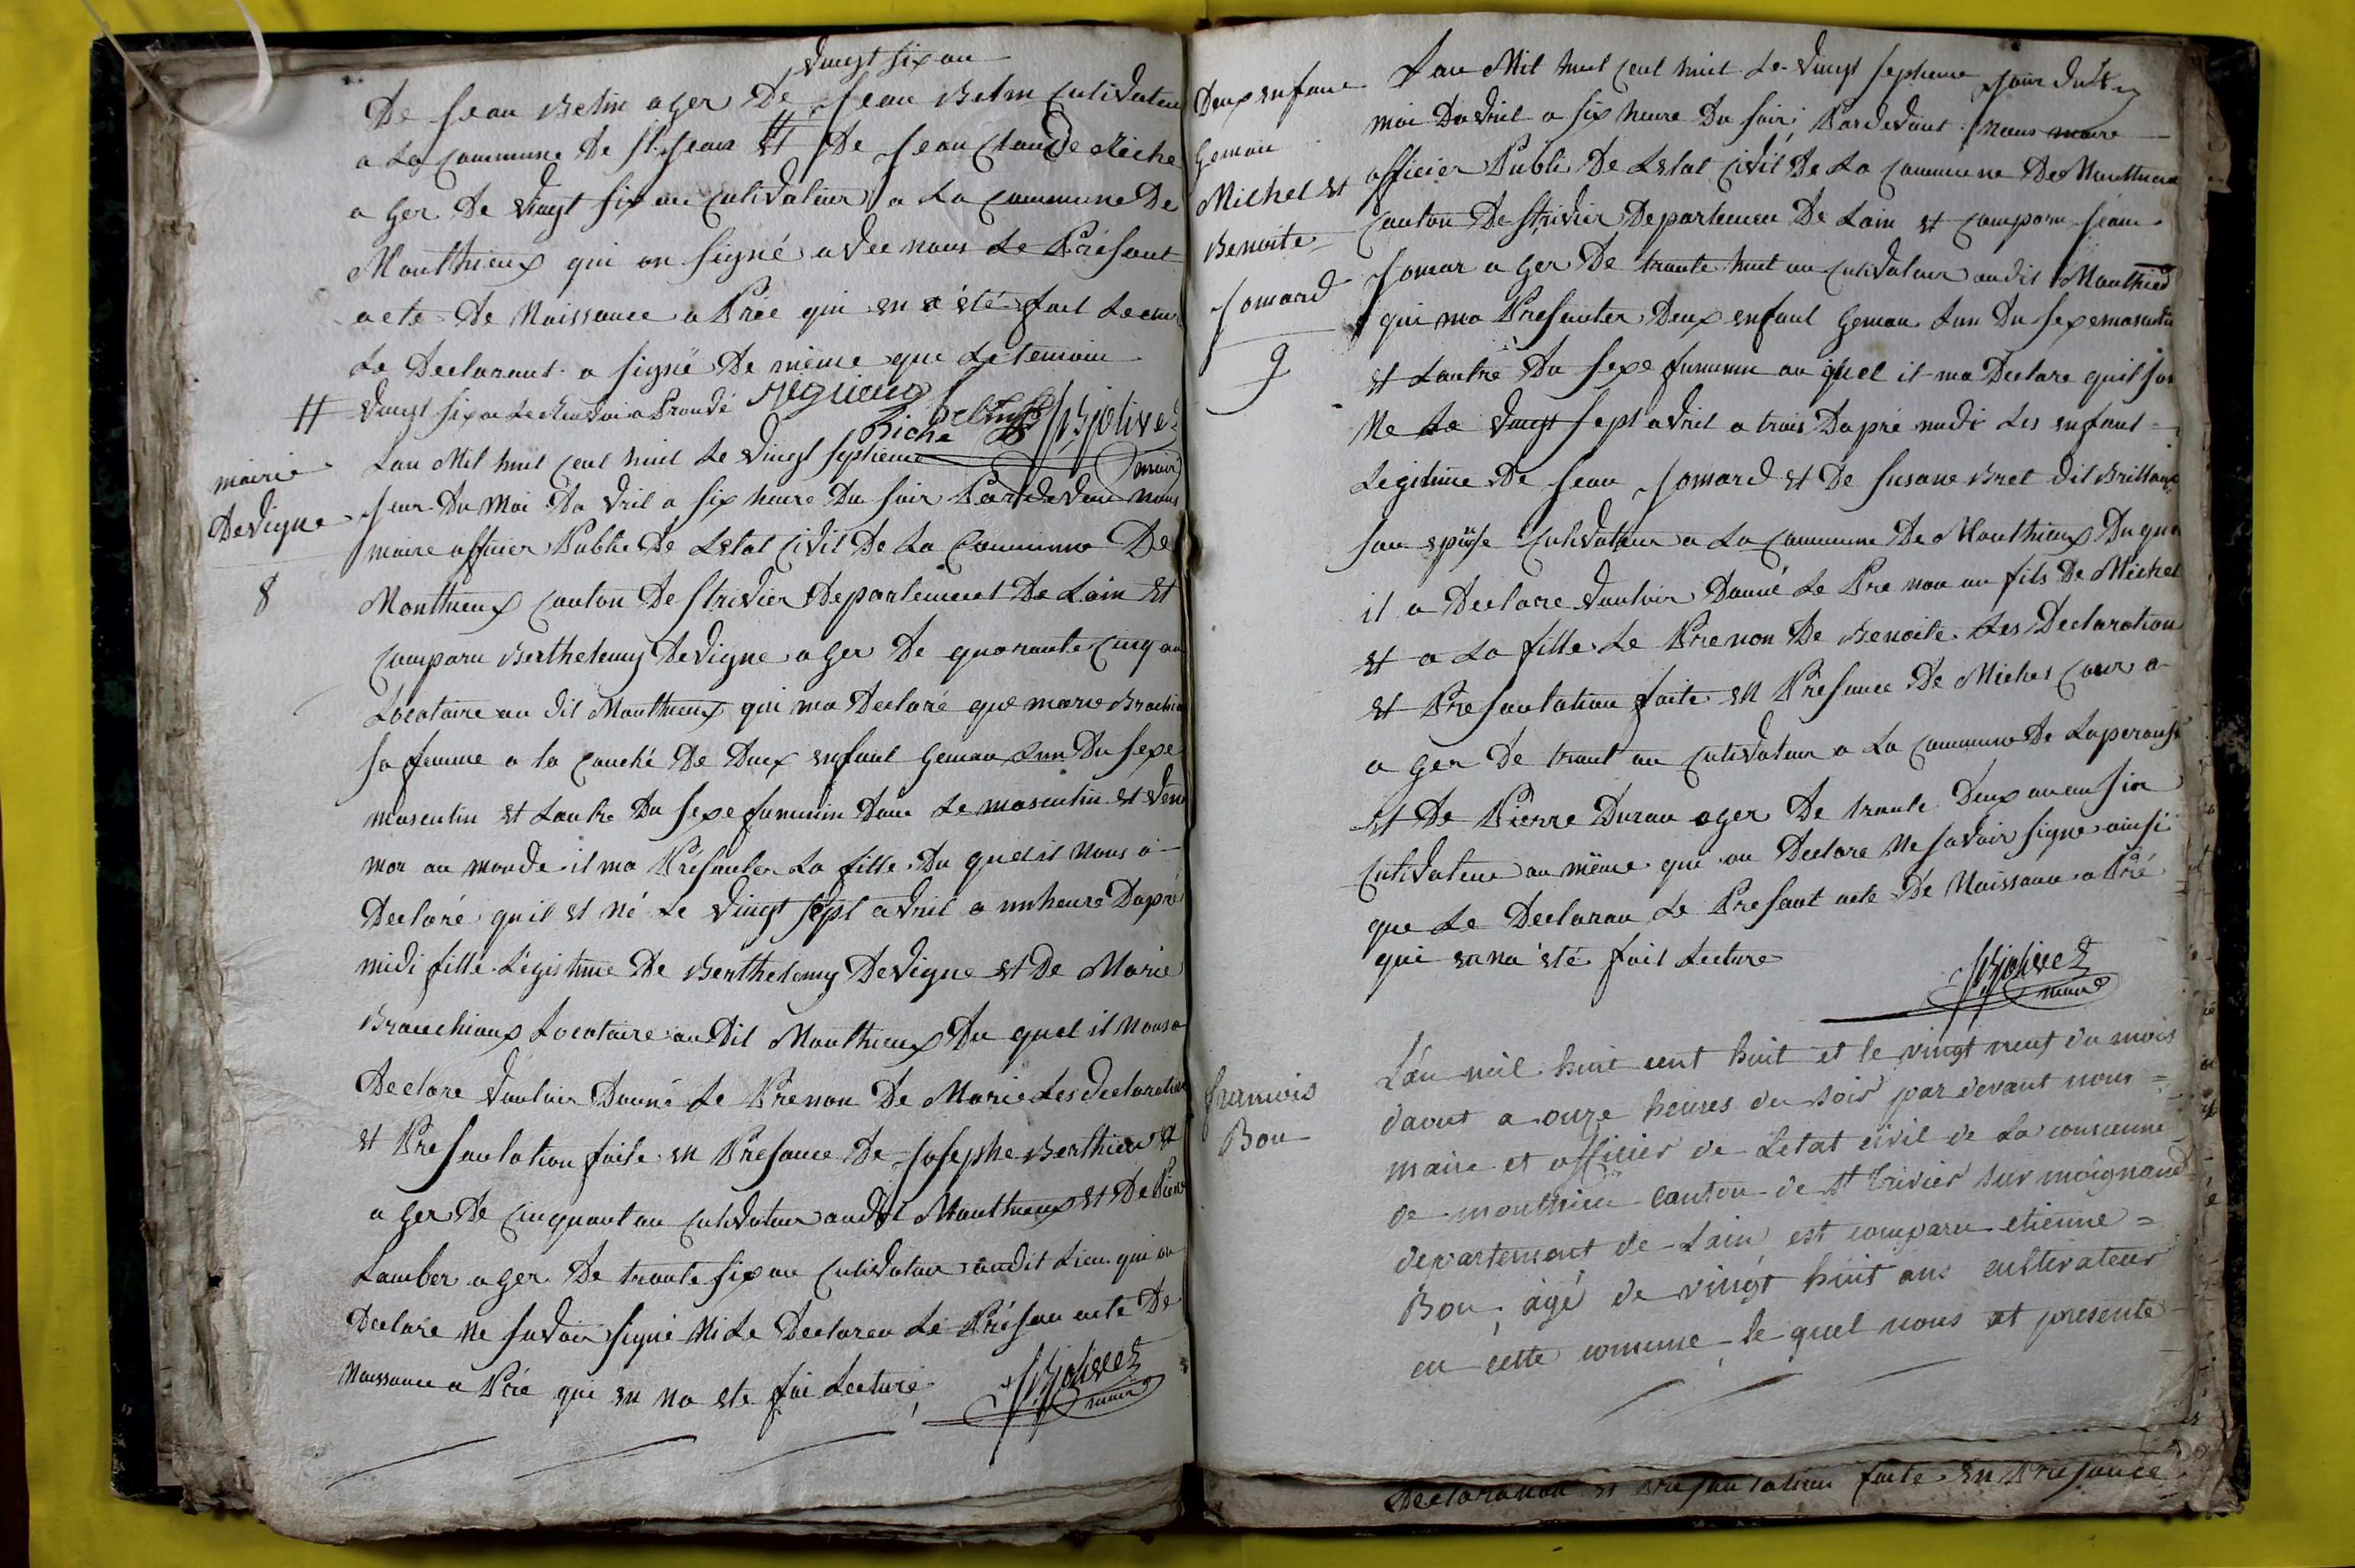 vingt six an
De Jean Belin ager De Jean Belin Cultivateur
a La Commune De St Jean Et De Jean Claude Riche
a Ger De vingt six an Cultivateur a La Commune De
Monthieux qui on signé avec nous Le Présant
acte De Naissance a Prée qui en a été fait Lectur
Le Declarant a signé De même que Le temoin
# vingt six
Riche Belin Bjolivet
maire
mairie
Devigne
8
Lan Mil huit Cent huit Le vingt septieme
Jour Du Moi Da vril a six heure Du soir Pardevan nous
maire officier Public De Letat Civil De La Commune De
Monthieux Canton De St trivier Departement De Lain Et
Comparu Berthelemy Devigne a Ger De quarante Cinq an
Locataire au dit Monthieux qui ma Declaré que marie
sa femme a la Couché De Deux enfant Gemau Lun Du sexe
masculin Et Lautre Du sexe feminin Dont Le masculin Et venu
mor au monde il ma Présenter La fille Du quel il nous a
Declaré quil Et né Le vingt sept avril a un heure Dapré
midi fille Légistime De Berthelemy Devigne Et De Marie
Branchioux Locataire au Dit Monthieux Du quel il nous a
Declare vouloir Donné Le Prenom De Marie Les declaration
Et Presantation faite en Presance De Josephe Berthier Et
a Ger De Cinquant an Cultivateur audit Monthieux Et De Piere
Lamber a ger De trante six an Cultivateur audit Lieu qui on
Declare Ne savoir signé Ni Le Declaran Le Présan acte De
Naissance a Pré qui en na ete fai Lecture
Bjolivet
maire
Deux enfant
Gemau
Michel Et
Benoite
Jomard
9
Lan Mil huit Cent huit Le vingt septieme jour du
moi Davril a six heure Du soir Pardevant nous maire
officier Public De Letat Civil De La Commune De Monthieux
Canton De St trivier Departemen De Lain Et Comparu Jean
Jomar a Ger De trante huit an Cultivateur audit Monthieu
qui ma Presenter Deux enfant Gemau Lun Du sexe masculin
Et Lautre Du sexe feminin au quel il ma Declare quil son
Ne Le vingt sept avril a trois Dapré midi Les enfant
Legitime De Jean Jomard Et De Susane Bret dit Brillant
son epouse Cultivateur a La Commune De Monthieux Du quel
il a Declare vouloir Donné Le Pre nom au fils De Michel
Et a La fille Le Prenom De Benoite Les Declaration
Et Presantation faite en Presance De Michel
a ger De trant an Cultivateur a La Commune De Laperouse
Et De Pierre Duran ager De trante Deux an aussi
Cultivateur au même qui on Declare Ne savoir signe ainsi
que Le Declaran Le Presant acte De Naissance a Pré
qui en na été fait Lecture
Bjolivet
maire
francois
Bon
Lan mil huit cent huit et le vingt neuf du mois
daout a onze heures du soir par devant nous =
maire et officier de Letat civil de La commune
de monthieu canton de St trivier sur moignand
departement de Lain est comparu etienne =
Bon, agé de vingt huit ans cultivateur
en cette comune le quel nous at presenté
Declaration Et Presantation faite en Presance